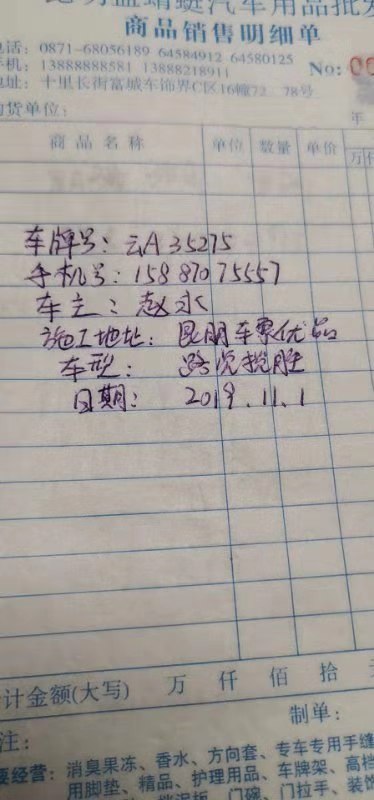 蓝蜻蜓汽车用品批发
商品销售明细单
电话：0871-68056189 64584912 64580125
手机：13888888581 13888218911
No: 00
地址：十里长街富城车饰界C区16幢72、78号
购货单位：
年
商品名称 单位 数量 单价 万 仟
车牌号：云A35275
手机号：15887075557
车主：赵永
施工地址：昆明车票优品
车型：路虎揽胜
日期：2019.11.1
计金额(大写) 万 仟 佰 拾
制单：
注：
要经营：消臭果冻、香水、方向套、专车专用手缝
用脚垫、精品、护理用品、车牌架、高档
挡泥板、门碗、门拉手、装饰